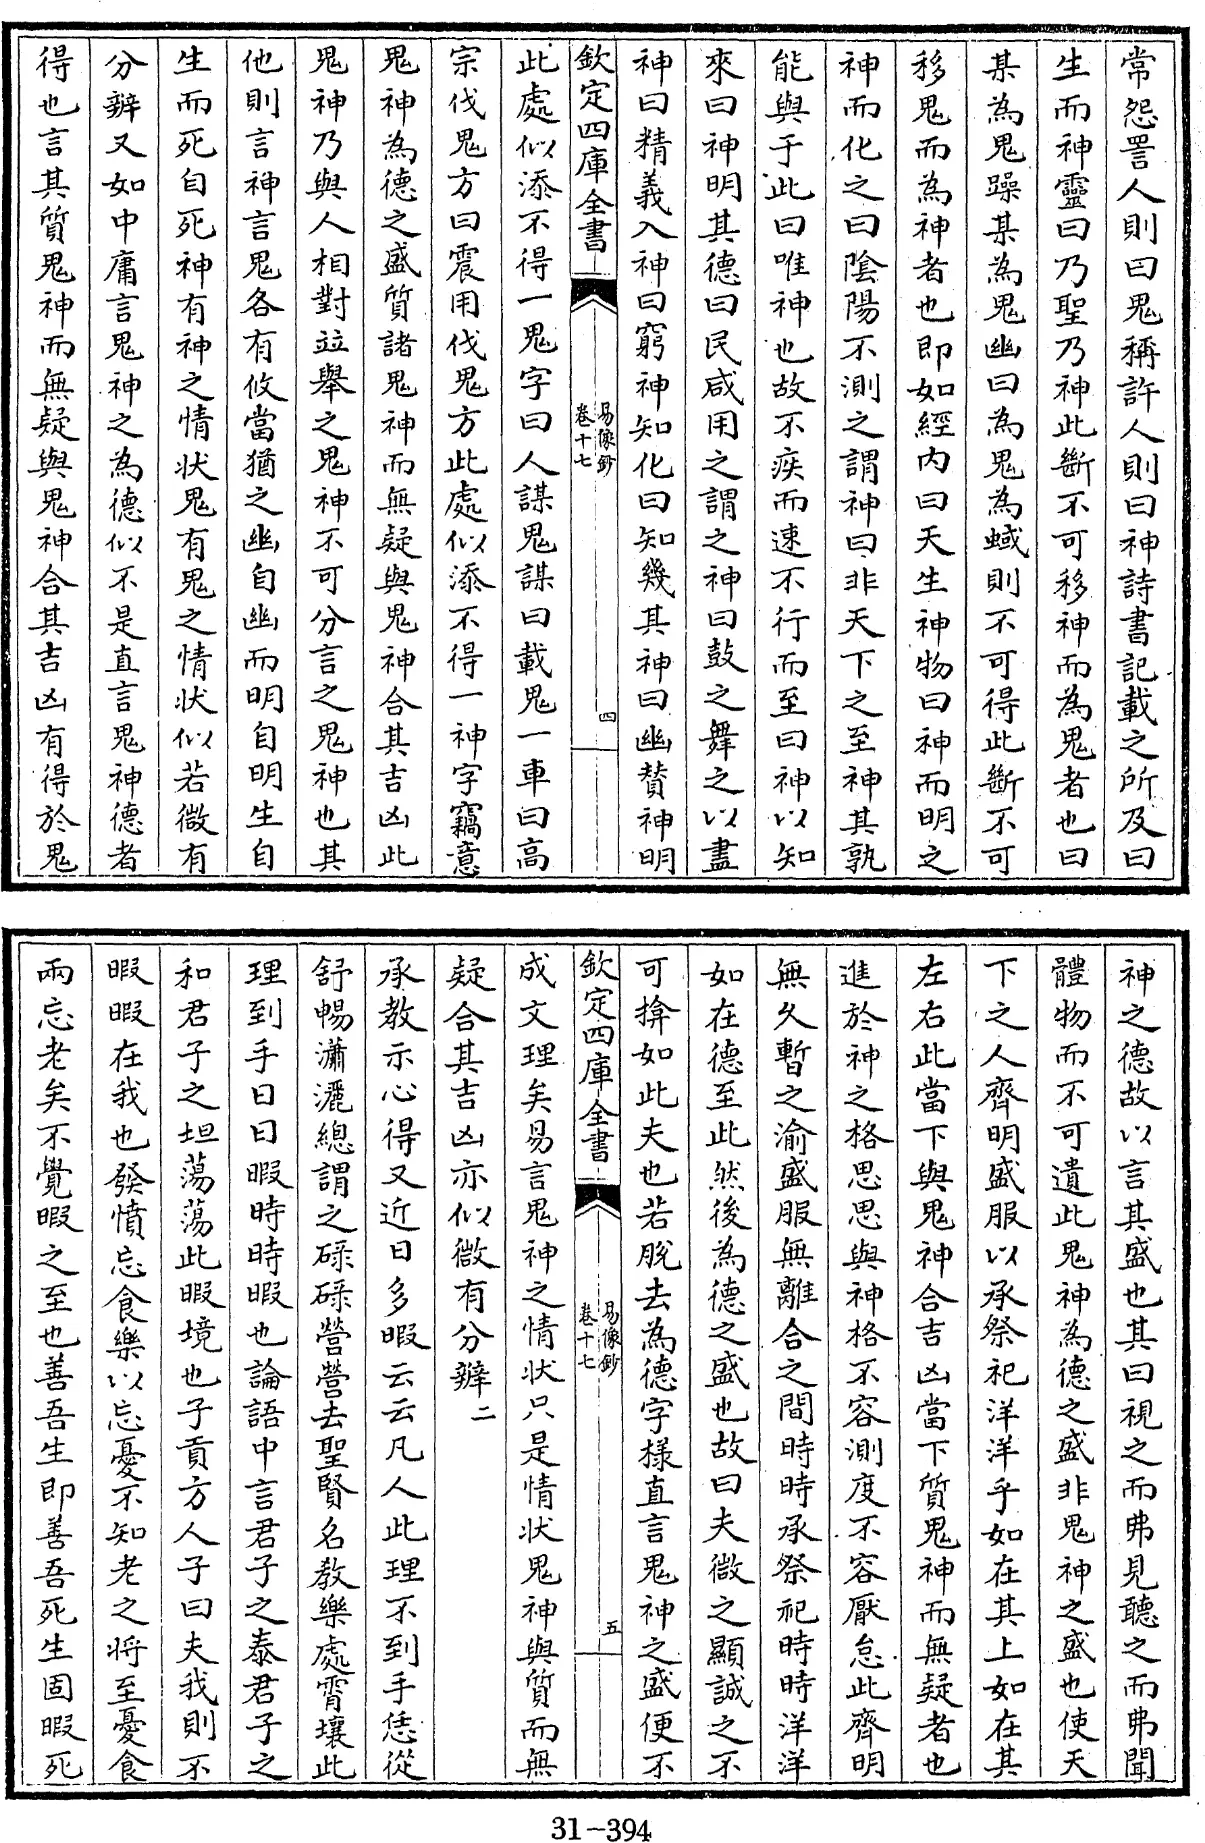 常怨詈人則曰鬼稱許人則曰神詩書記載之所及曰
生而神靈曰乃聖乃神此斷不可移神而為鬼者也曰
某為鬼躁某為鬼幽曰為鬼為蜮則不可得此斷不可
移鬼而為神者也即如經内曰天生神物曰神而明之
神而化之曰陰陽不測之謂神曰非天下之至神其孰
能與于此曰唯神也故不疾而速不行而至曰神以知
來曰神明其德曰民咸用之謂之神曰鼓之舞之以盡
神曰精義入神曰窮神知化曰知幾其神曰幽賛神明
欽定四庫全書
易像鈔
卷十七
四
此處似添不得一鬼字曰人謀鬼謀曰載鬼一車曰高
宗伐鬼方曰震用伐鬼方此處似添不得一神字竊意
鬼神為德之盛質諸鬼神而無疑與鬼神合其吉凶此
鬼神乃與人相對竝舉之鬼神不可分言之鬼神也其
他則言神言鬼各有攸當猶之幽自幽而明自明生自
生而死自死神有神之情狀鬼有鬼之情狀似若微有
分辧又如中庸言鬼神之為德似不是直言鬼神德者
得也言其質鬼神而無疑與鬼神合其吉凶有得於鬼
神之德故以言其盛也其曰視之而弗見聽之而弗聞
體物而不可遺此鬼神為德之盛非鬼神之盛也使天
下之人齊明盛服以承祭祀洋洋乎如在其上如在其
左右此當下與鬼神合吉凶當下質鬼神而無疑者也
進於神之格思思與神格不容測度不容厭怠此齊明
無久暫之渝盛服無離合之間時時承祭祀時時洋洋
如在德至此然後為德之盛也故曰夫微之顯誠之不
可揜如此夫也若脫去為德字様直言鬼神之盛便不
欽定四庫全書
易像鈔
卷十七
五
成文理矣易言鬼神之情狀只是情狀鬼神與質而無
疑合其吉凶亦似微有分辧二
承教示心得又近日多暇云云凡人此理不到手恁從
舒暢瀟灑總謂之碌碌營營去聖賢名教樂處霄壤此
理到手日日暇時時暇也論語中言君子之泰君子之
和君子之坦蕩蕩此暇境也子貢方人子曰夫我則不
暇暇在我也發憤忘食樂以忘憂不知老之將至憂食
兩忘老矣不覺暇之至也善吾生即善吾死生固暇死
31-394